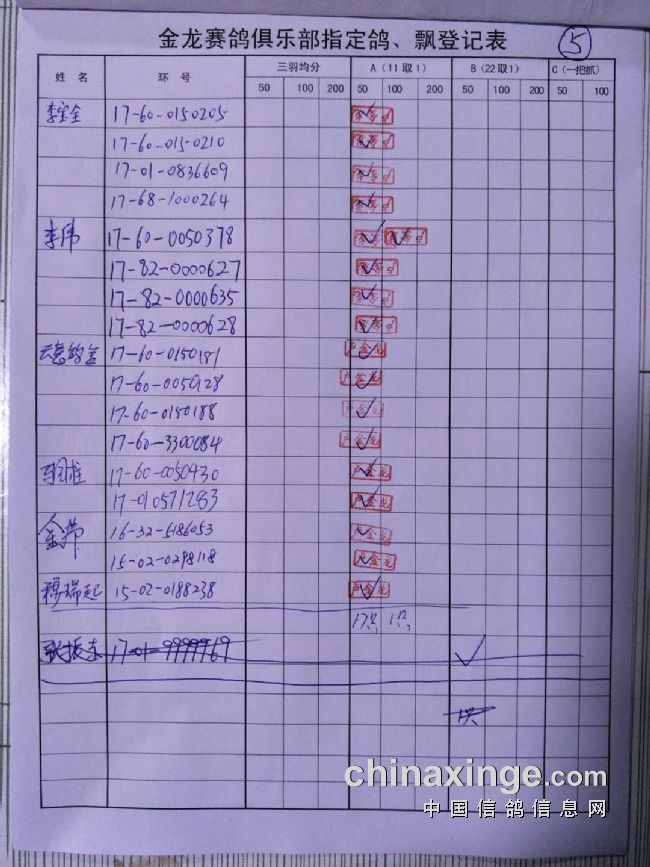 金龙赛鸽俱乐部指定鸽、飘登记表 ⑤
姓 名 环 号 三羽均分 A（11取1） B（22取1） C（一把抓）
50 100 200 50 100 200 50 100 200 50 100
李宝全 17-60-0150205 ✓
17-60-0150210 ✓
17-01-0836609 ✓
17-68-1000264 ✓
李伟 17-60-0050378 ✓ ✓
17-82-0000627 ✓
17-82-0000635 ✓
17-82-0000628 ✓
17-60-0150181 卢金龙 ✓
17-60-0050128 卢金龙 ✓
17-60-0150188 卢金龙 ✓
17-60-3300084 卢金龙 ✓
17-60-0050430 卢金龙 ✓
17-010571283 卢金龙 ✓
16-32-5186053 卢金龙 ✓
15-02-0298118 卢金龙 ✓
穆瑞起 15-02-0188238 卢金龙 ✓
17只 1只
张振东 17-01-9999969 ✓
chinaxinge.com
中国信鸽信息网